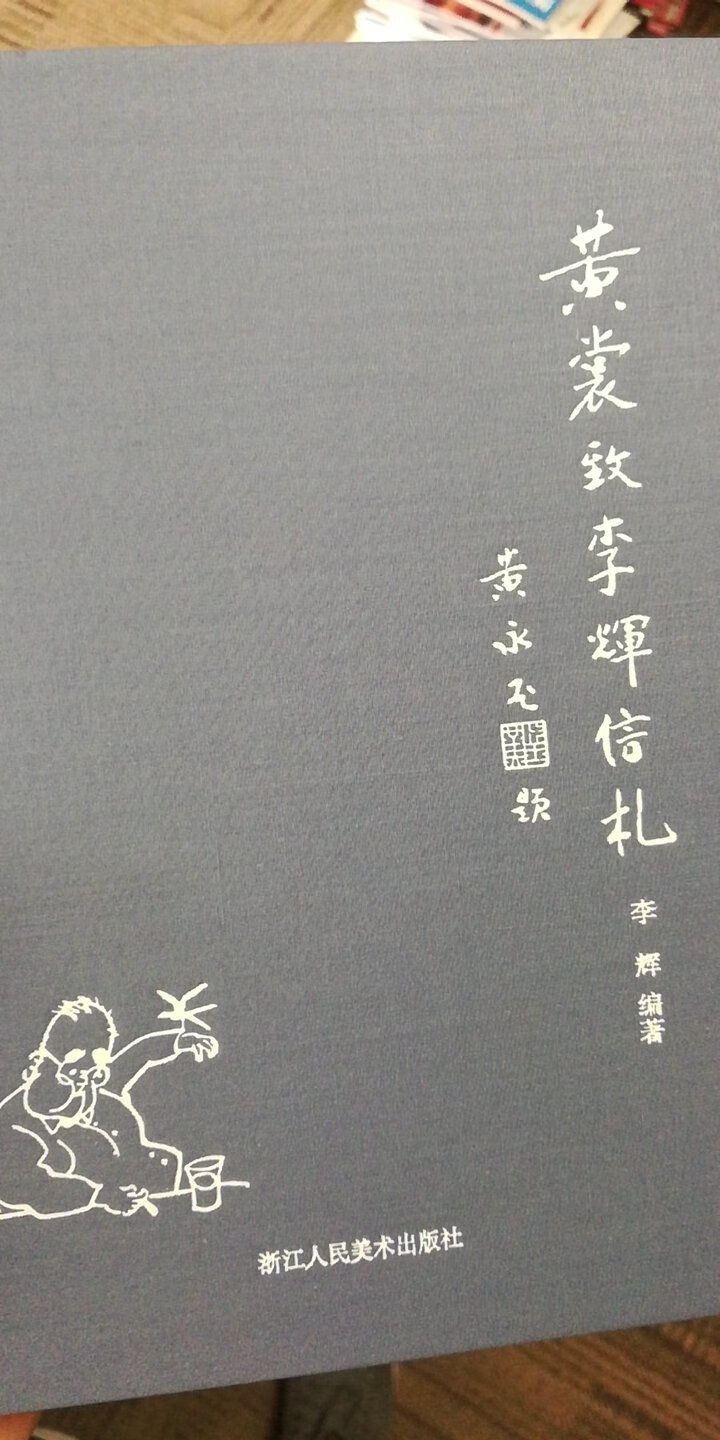 黄裳致李輝信札
黄永玉
题
李辉编著
浙江人民美术出版社